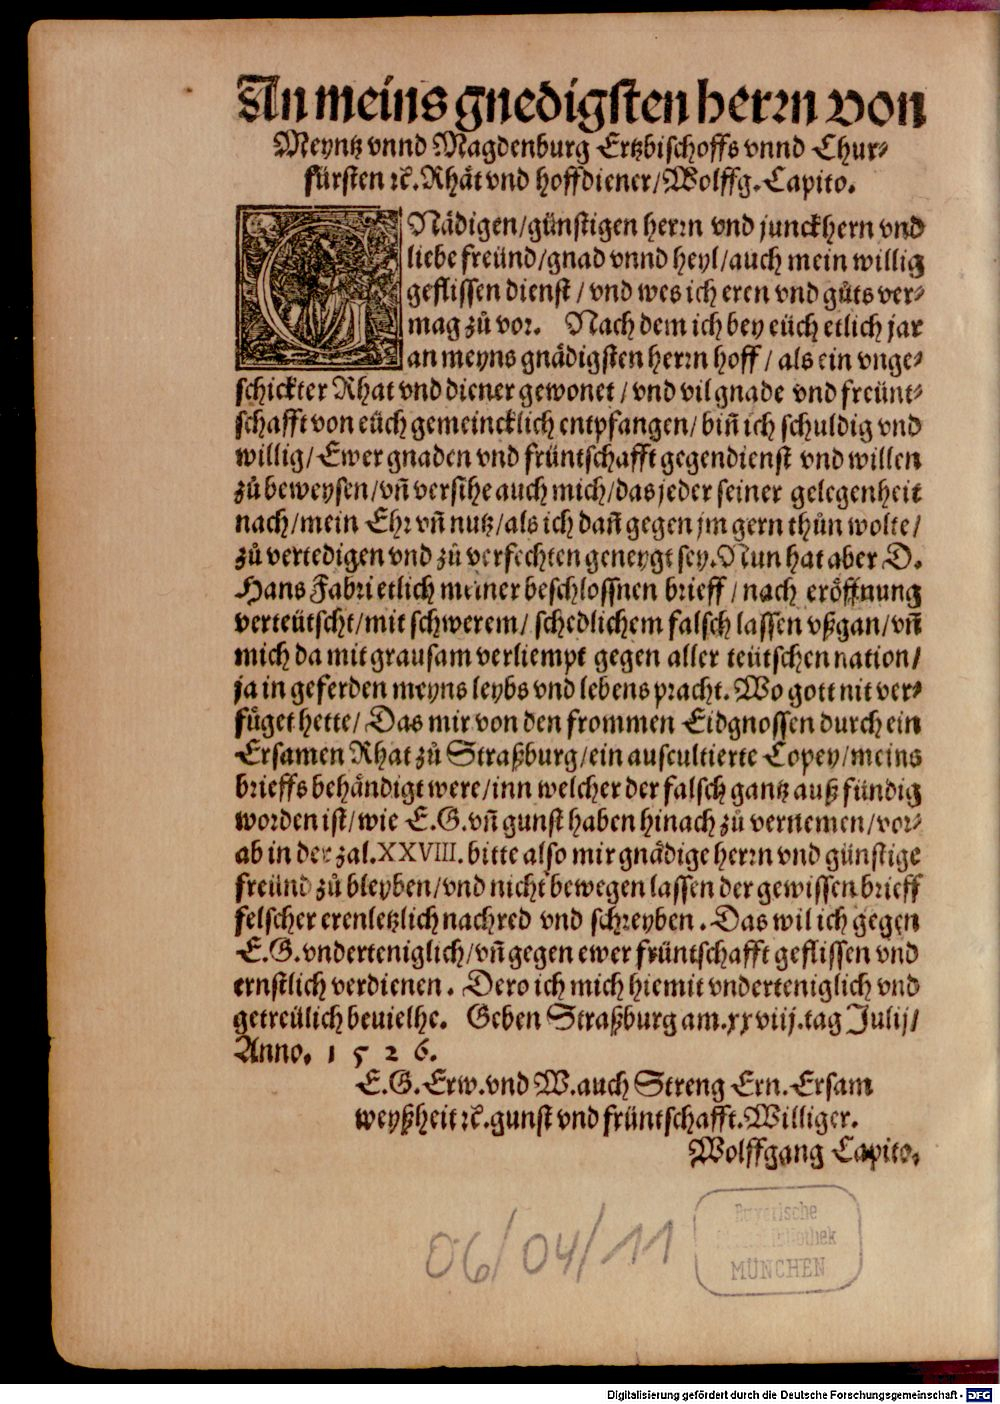 An meins gnedigsten herrn von
Meyntz vnnd Magdenburg Ertzbischoffs vnnd Chur⸗
fürsten ꝛc. Rhät vnd hoffdiener/ Wolffg. Capito.
GNädigen/ günstigen herrn vnd junckhern vnd
liebe freünd/ gnad vnnd heyl/ auch mein willig
geflissen dienst/ vnd wes ich eren vnd gůts ver⸗
mag zů vor. Nach dem ich bey eüch etlich jar
an meyns gnädigsten herrn hoff/ als ein vnge⸗
schickter Rhat vnd diener gewonet/ vnd vil gnade vnd freünt⸗
schafft von eüch gemeincklich entpfangen/ biñ ich schuldig vnd
willig/ Ewer gnaden vnd früntschafft gegendienst vnd willen
zů beweysen/ vñ versihe auch mich/ das jeder seiner gelegenheit
nach/ mein Ehr vñ nutz/ als ich dañ gegen jm gern thůn wolte/
zů vertedigen vnd zů verfechten geneygt sey. Nun hat aber D.
Hans Fabri etlich meiner beschlossnen brieff/ nach eröffnung
verteütscht/ mit schwerem/ schedlichem falsch lassen vßgan/ vñ
mich da mit grausam verliempt gegen aller teütschen nation/
ja in geferden meyns leybs vnd lebens pracht. Wo gott nit ver⸗
füget hette/ Das mir von den frommen Eidgnossen durch ein
Ersamen Rhat zů Straßburg/ ein auscultierte Copey/ meins
brieffs behändigt were/ inn welcher der falsch gantz auß fündig
worden ist/ wie E.G. vñ gunst haben hinach zů vernemen/ vor⸗
ab in der zal. XXVIII. bitte also mir gnädige herrn vnd günstige
freünd zů bleyben/ vnd nicht bewegen lassen der gewissen brieff
felscher erenletzlich nachred vnd schreyben. Das wil ich gegen
E.G. vnderteniglich/ vñ gegen ewer früntschafft geflissen vnd
ernstlich verdienen. Dero ich mich hiemit vnderteniglich vnd
getreülich beuielhe. Geben Straßburg am. xxviij. tag Julij/
Anno. 1 5 2 6.
E.G. Erw. vnd W. auch Streng Ern. Ersam
weyßheit ꝛc. gunst vnd früntschafft. Williger.
Wolffgang Capito.
06/04/11
Bayerische
Staatsbibliothek
MÜNCHEN
Digitalisierung gefördert durch die Deutsche Forschungsgemeinschaft - DFG